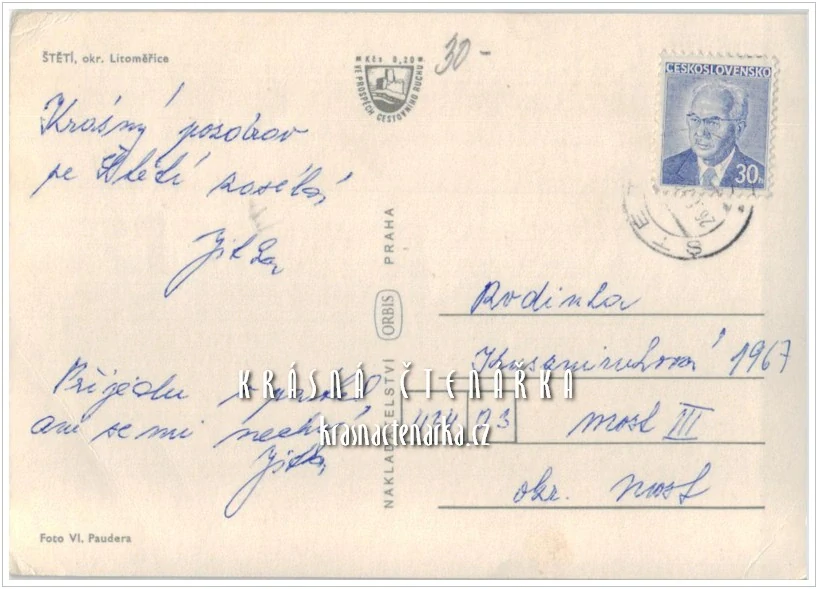 ŠTĚTÍ, okr. Litoměřice
Kčs 0,20
VE PROSPĚCH CESTOVNÍHO RUCHU
30-
ČESKOSLOVENSKO
30h
ŠTĚT
26.
Krásný pozdrav
ze Štětí zasílá
Jitka
Přijedu v
ani se mi
Jitka
Foto Vl. Paudera
NAKLADATELSTVÍ ORBIS PRAHA
Rodinka
1967
434 03
Most III
okr. Most
KRÁSNÁ ČTENÁŘKA
krasnactenarka.cz